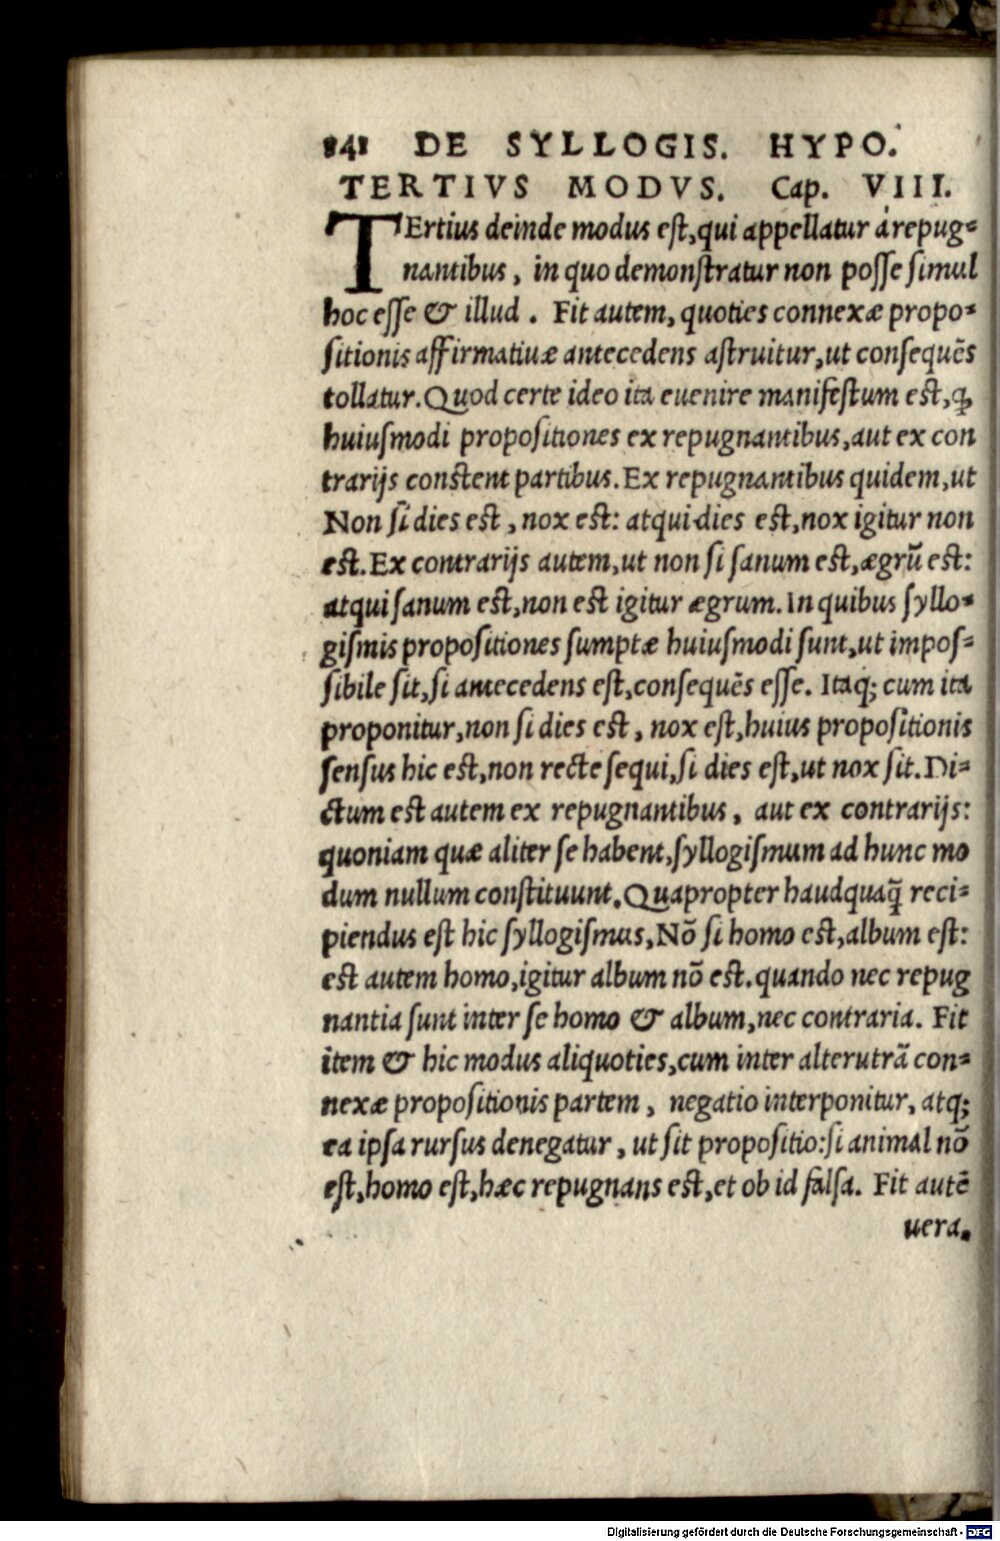 141 DE SYLLOGIS. HYPO.
TERTIVS MODVS. Cap. VIII.
TErtius deinde modus est,qui appellatur à repug-
nantibus, in quo demonstratur non posse simul
hoc esse & illud. Fit autem, quoties connexæ propo-
sitionis affirmatiuæ antecedens astruitur,ut consequẽs
tollatur. Quod certe ideo ita euenire manifestum est,ꝙ
huiusmodi propositiones ex repugnantibus,aut ex con
trarijs constent partibus. Ex repugnantibus quidem,ut
Non si dies est, nox est: atqui dies est,nox igitur non
est. Ex contrarijs autem,ut non si sanum est,ægrũ est:
atqui sanum est,non est igitur ægrum. In quibus syllo-
gismis propositiones sumptæ huiusmodi sunt,ut impos-
sibile sit,si antecedens est,consequẽs esse. Itaq; cum ita
proponitur,non si dies est, nox est,huius propositionis
sensus hic est,non recte sequi,si dies est,ut nox sit. Di-
ctum est autem ex repugnantibus, aut ex contrarijs:
quoniam quæ aliter se habent,syllogismum ad hunc mo
dum nullum constituunt. Quapropter haudquaq̃ reci-
piendus est hic syllogismus,Nõ si homo est,album est:
est autem homo,igitur album nõ est. quando nec repug
nantia sunt inter se homo & album,nec contraria. Fit
item & hic modus aliquoties,cum inter alterutrã con-
nexæ propositionis partem, negatio interponitur, atq;
ea ipsa rursus denegatur, ut sit propositio: si animal nõ
est,homo est,hæc repugnans est,et ob id falsa. Fit autẽ
uera.
Digitalisierung gefördert durch die Deutsche Forschungsgemeinschaft - DFG